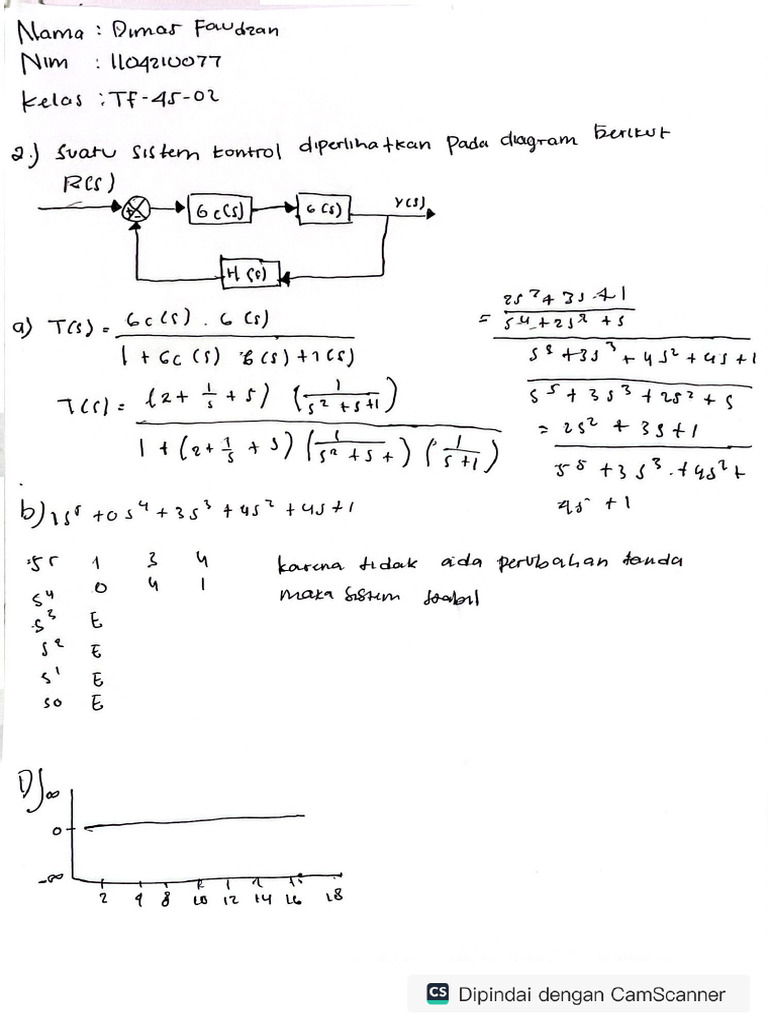 Nama : Dimas Fawdzan
Nim : 1104210077
Kelas : TF-45-02
2.) Suatu sistem kontrol diperlihatkan pada diagram berikut
R(s)
Gc(s) G(s) Y(s)
H(s)
a) T(s) = Gc(s) . G(s)
1 + Gc(s) G(s) + 1(s)
T(s) = (2 + 1/s + s) (1/s² + s + 1)
1 + (2 + 1/s + s) (1/s² + s +) (1/s+1)
= 2s² + 3s + 1
s⁴ + 2s² + s
s⁵ + 3s³ + 4s² + 4s + 1
s⁵ + 3s³ + 2s² + s
= 2s² + 3s + 1
s⁵ + 3s³ + 4s² +
4s + 1
b) 1s⁵ + 0s⁴ + 3s³ + 4s² + 4s + 1
s⁵ 1 3 4
s⁴ 0 4 1
s³ E
s² E
s¹ E
s0 E
karena tidak ada perubahan tanda
maka sistem stabil
D) ∞
0
-∞
2 4 8 10 12 14 16 18
CS Dipindai dengan CamScanner